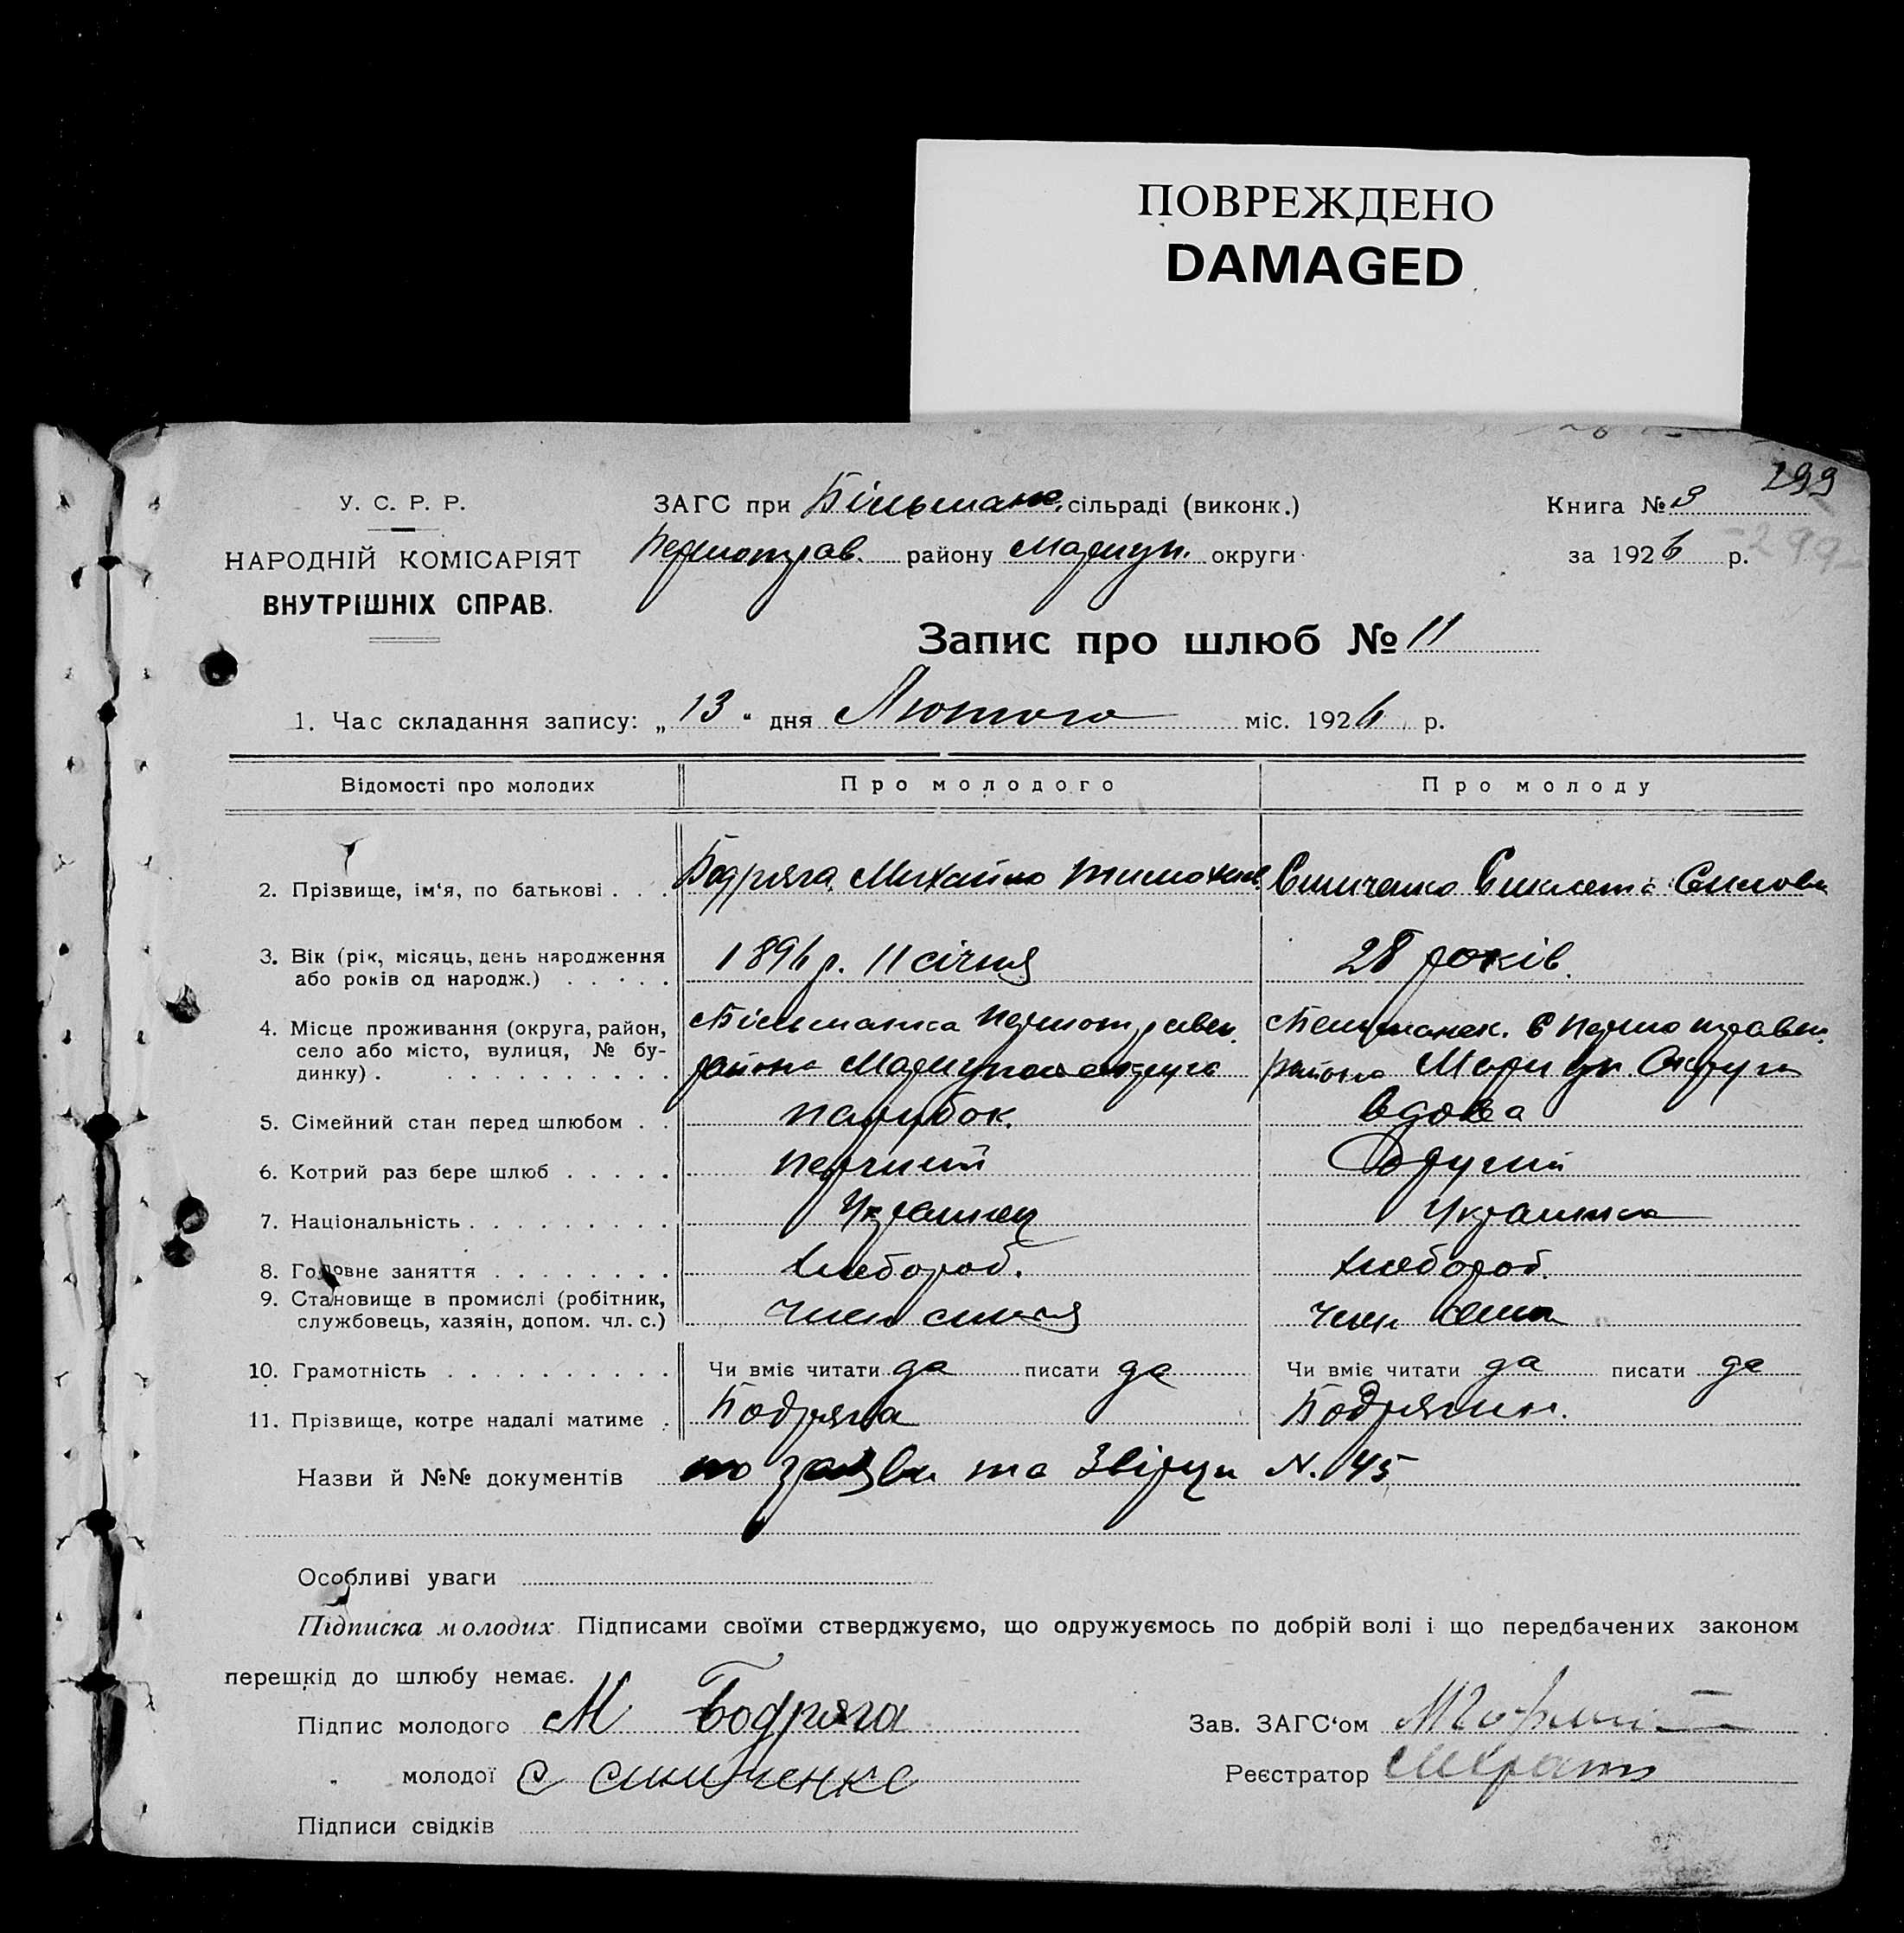 ПОВРЕЖДЕНО
DAMAGED
299
У. С. Р. Р.
НАРОДНІЙ КОМІСАРІЯТ
ВНУТРІШНІХ СПРАВ.
ЗАГС при Більманк. сільраді (виконк.)
Першотрав. району Маріуп. округи
Книга № 3
за 1926 р.
-299-
Запис про шлюб № 11
1. Час складання запису: „13“ дня Лютого міс. 1926 р.
Відомості про молодих Про молодого Про молоду
2. Прізвище, ім‘я, по батькові . . . Бодряга Михайло Тимохієв. Синиченко
3. Вік (рік, місяць, день народження
або років од народж.) . . . . . 1896 р. 11 січня 28 років.
4. Місце проживання (округа, район,
село або місто, вулиця, № бу-
динку) . . . . . . . . . . .
Більманка Першотравен. Першотравен.
района района Маріуп. Округи
5. Сімейний стан перед шлюбом . . парубок. вдова
6. Котрий раз бере шлюб . . . . . перший Другий
7. Національність . . . . . . . . . Украинец Украинка
8. Головне заняття . . . . . . . . хлебороб. хлебороб.
9. Становище в промислі (робітник,
службовець, хазяїн, допом. чл. с.) член семья член семи
10. Грамотність . . . . . . . . . . Чи вміє читати да писати да Чи вміє читати да писати да
11. Прізвище, котре надалі матиме . Бодряга Бодрягин.
Назви й №№ документів по заяви та Звірци N. 45
Особливі уваги
Підписка молодих. Підписами своїми стверджуємо, що одружуємось по добрій волі і що передбачених законом
перешкід до шлюбу немає.
Підпис молодого М Бодряга
Зав. ЗАГС‘ом
„ молодої С синиченко
Реєстратор
Підписи свідків